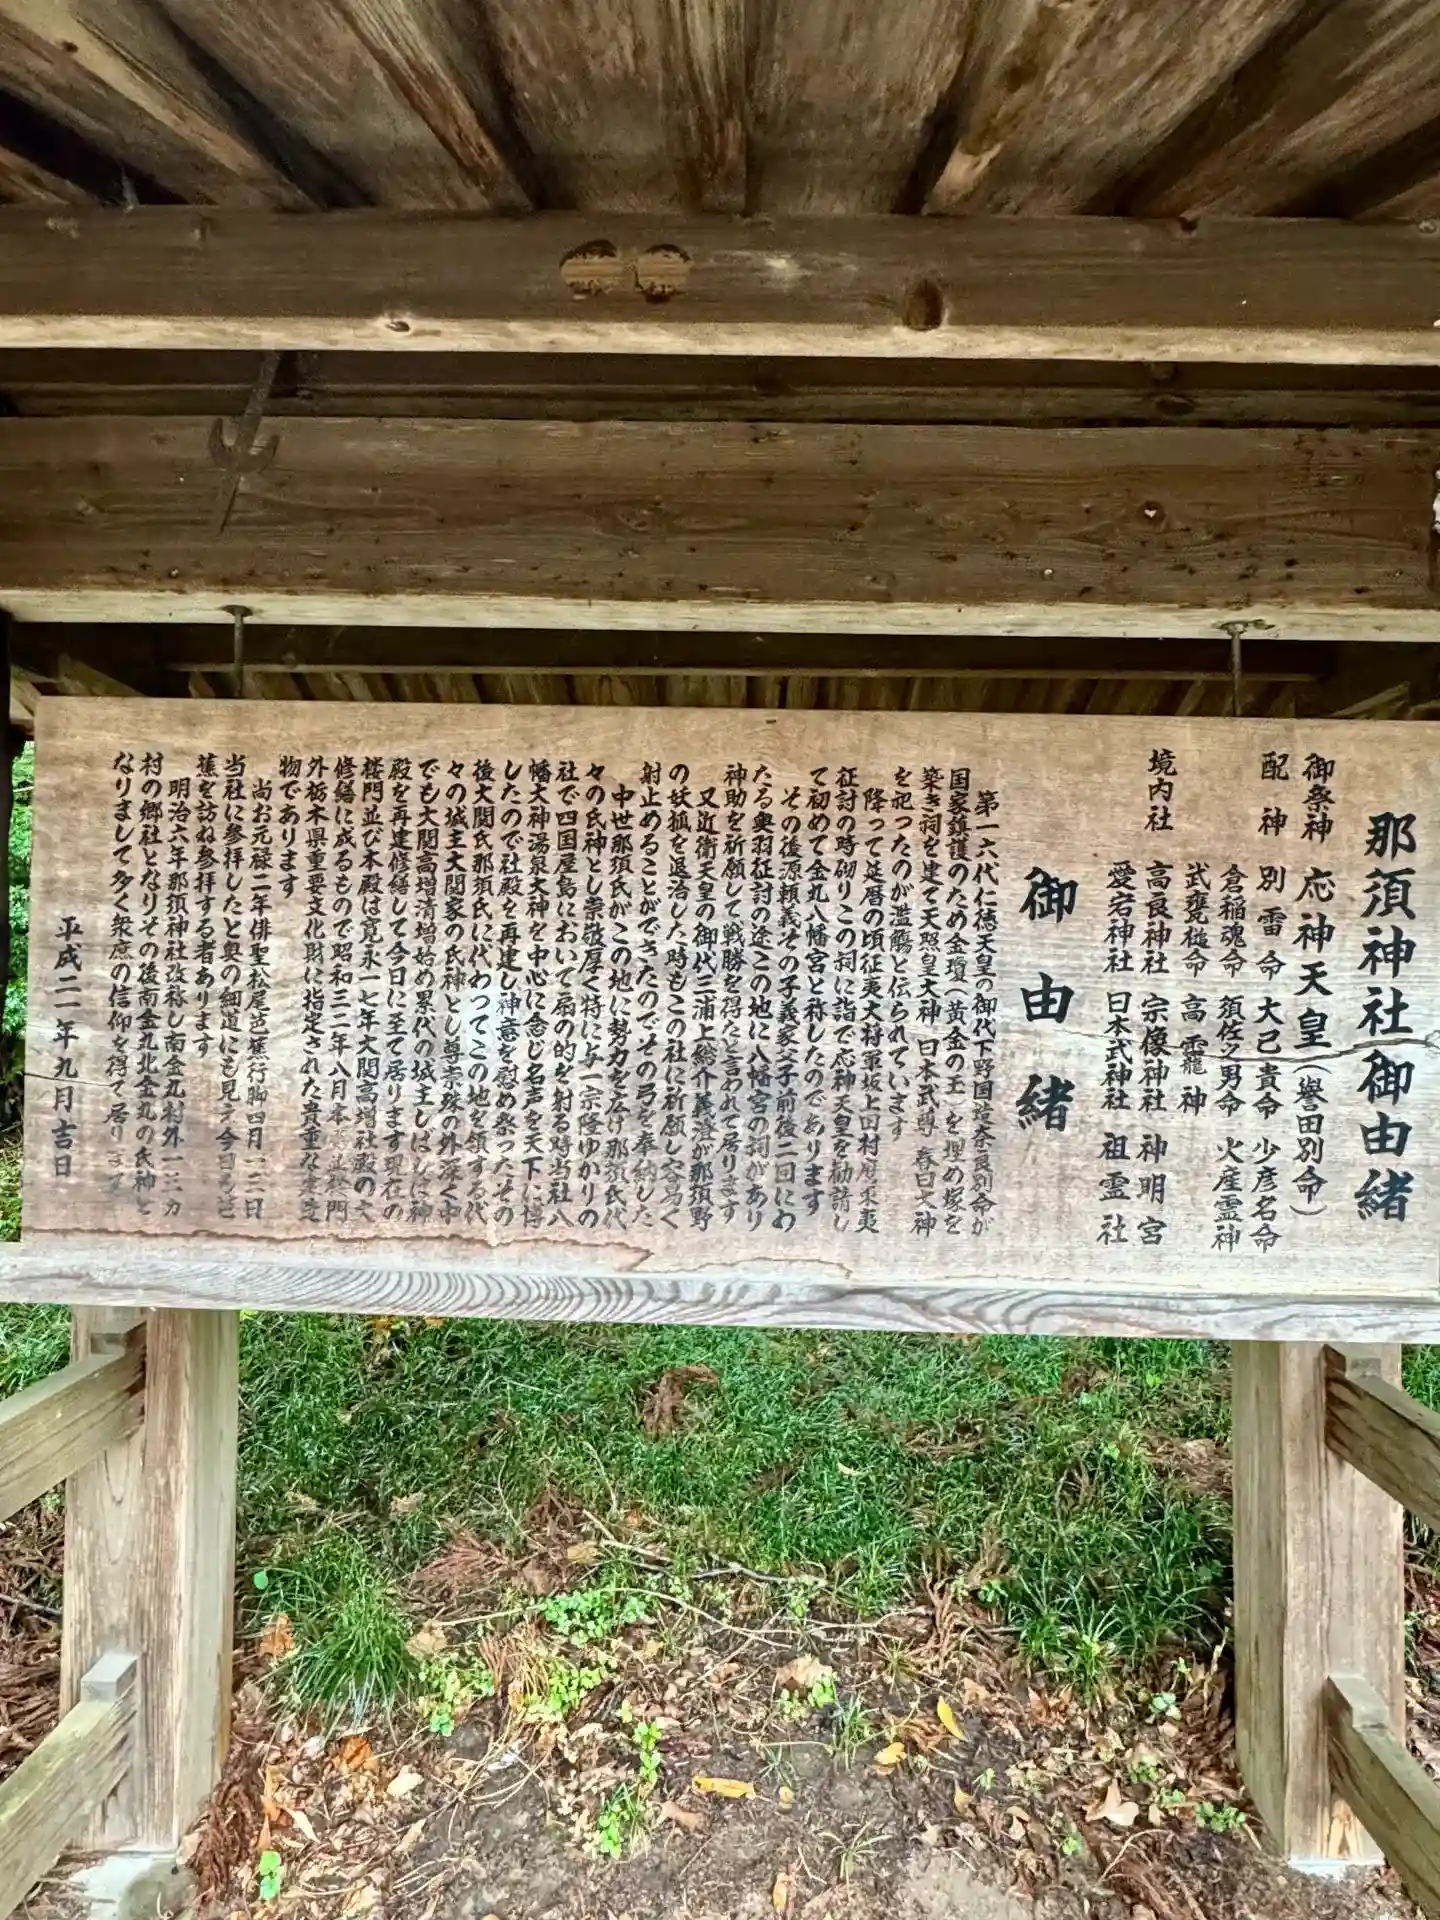 那須神社御由緒
御祭神 応神天皇(誉田別命)
配神 別雷命 大己貴命 少彦名命
倉稲魂命 須佐之男命 火産霊神
武甕槌命 高龗神
境内社 高良神社 宗像神社 神明宮
愛宕神社 日本武神社 祖霊社
御由緒
第一六代仁徳天皇の御代下野国造奈良別命が
国家鎮護のため金瓊(黄金の玉)を埋め塚を
築き祠を建て天照皇大神 日本武尊 春日大神
を祀ったのが濫觴と伝られています
降って延暦の頃征夷大将軍坂上田村麿東夷
征討の時砌りこの祠に詣で応神天皇を勧請し
て初めて金丸八幡宮と称したのであります
その後源頼義その子義家父子前後二回にわ
たる奥羽征討の途この地に八幡宮の祠があり
神助を祈願して戦勝を得たと言われて居ります
又近衛天皇の御代三浦上総介義澄が那須野
の妖狐を退治した時もこの社に祈願し容易く
射止めることができたのでその弓を奉納した
中世那須氏がこの地に勢力を広け那須氏代
々の氏神とし崇敬厚く特に与一宗隆ゆかりの
社で四国屋島において扇の的を射る時当社八
幡大神湯泉大神を中心に念じ名声を天下に博
したので社殿を再建し神意を慰め祭ったその
後大関氏那須氏に代わってこの地を領する代
々の城主大関家の氏神とし尊崇殊の外深く中
でも大関高増清増始め累代の城主しばしば神
殿を再建修繕して今日に至て居ります現在の
楼門並び本殿は寛永一七年大関高増社殿の大
修繕に成るもので昭和三二年八月本 並楼門
外栃木県重要文化財に指定された貴重な建造
物であります
尚お元禄二年俳聖松尾芭蕉行脚四月一二日
当社に参拝したと奥の細道にも見え今日も芭
蕉を訪ね参拝する者あります
明治六年那須神社改称し南金丸村外一三カ
村の郷社となりその後南金丸北金丸の氏神と
なりまして多く衆庶の信仰を得て居ります
平成二一年九月吉日